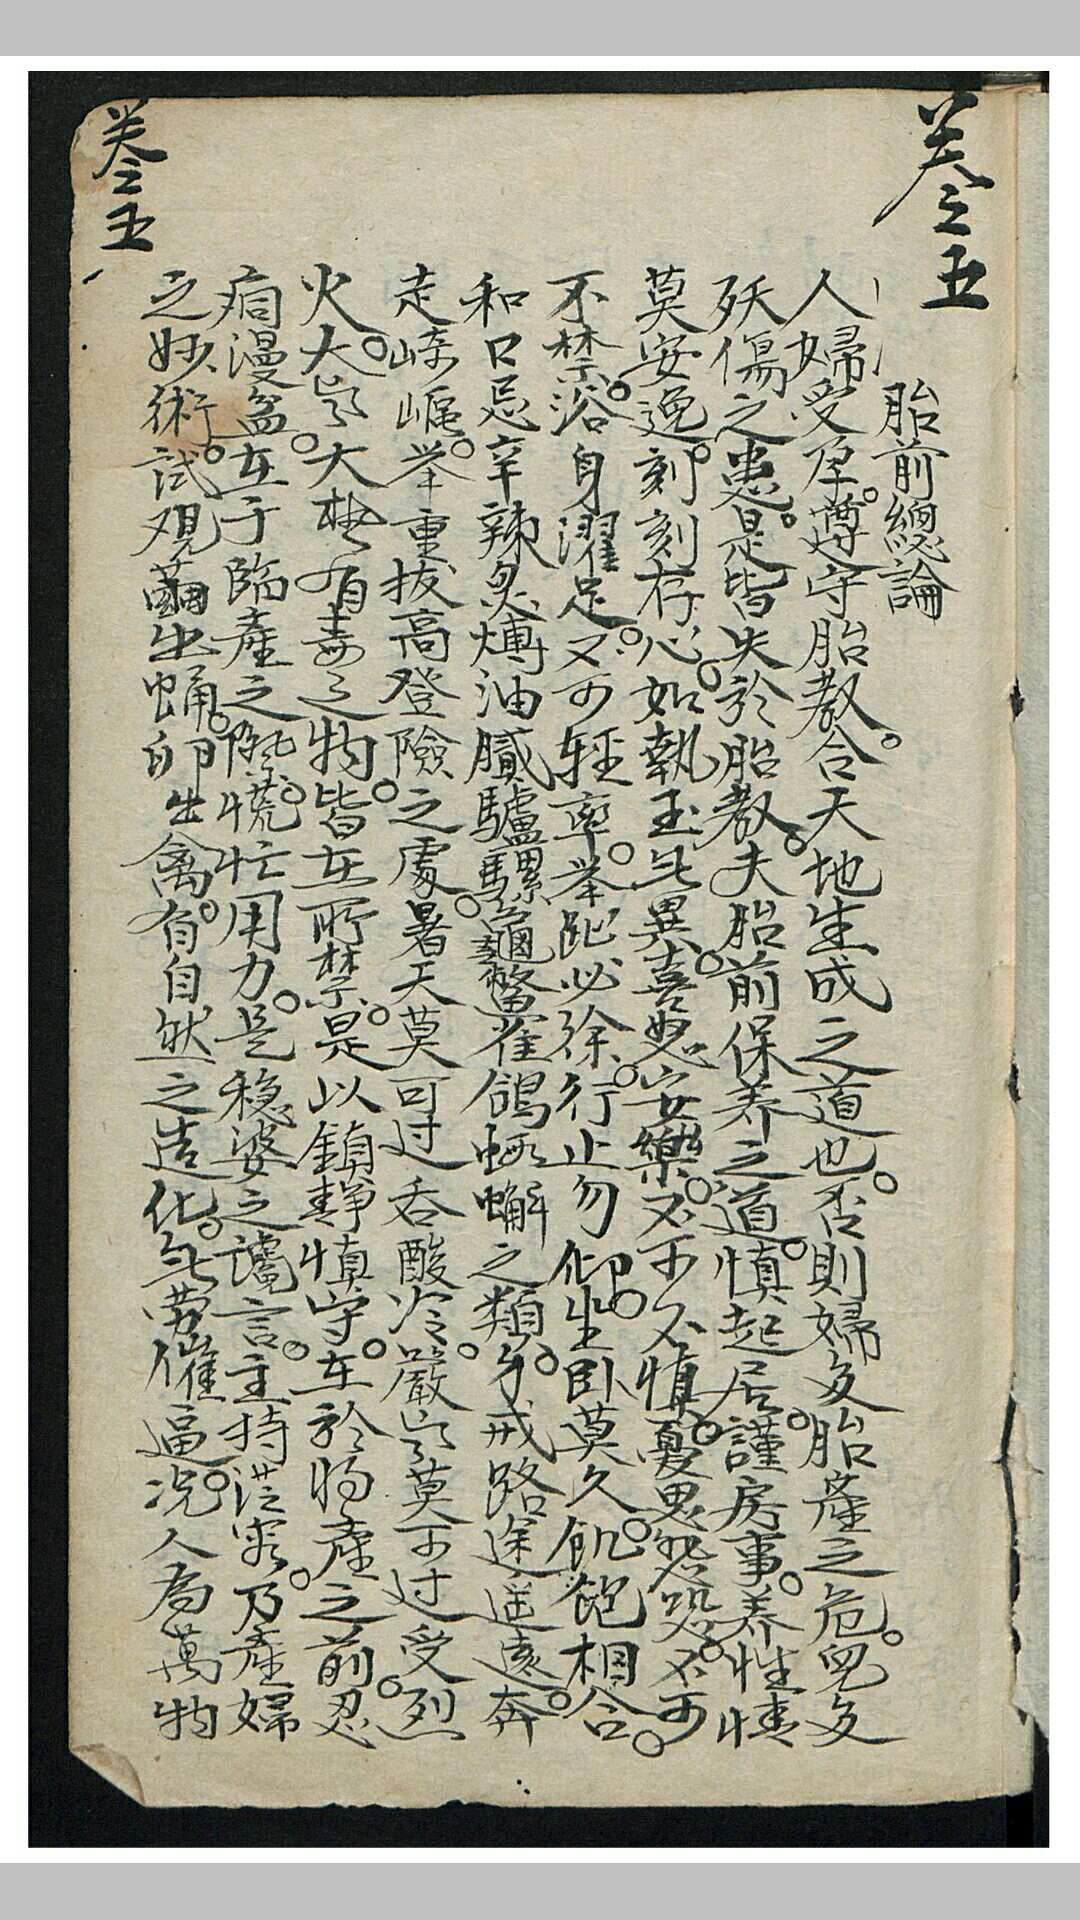 卷之五
胎前總論
人婦受孕。遵守胎教。合天地生成之道也。否則婦多胎產之危。兒多
殀傷之患。是皆失於胎教。夫胎前保养之道。慎起居。謹房事。养性情
莫安逸。刻刻存心。如執玉无異。喜怒安樂。不可不慎。憂思怨恐。不可
不禁。浴身濯足。又可輕率。举趾必徐。行止勿仰。坐卧莫久。飢飽相合。
和口忌辛辣炙煿油膩驢騾龜鱉雀鴿蝦蠏之類。身戒路途遥遠。奔
走崎嶇。举重拔高登險之處。暑天莫可过吞酸冷。嚴寒莫可过受烈
火。大寒。大熱有毒之物。皆在所禁。是以鎮静慎守。在於將產之前。忍
痛漫盆在于臨產之際。慌忙用力。是穏婆之謊言。主持從容。乃產婦
之妙術。試覌繭出蛹。卵出禽。有自然之造化。无劳催逼。况人為萬物
卷之五